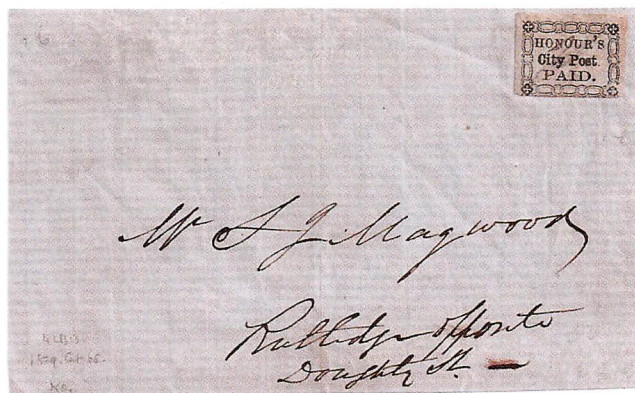 HONOUR'S
City Post
PAID.
Mr S J Magwood
Rutledge opposite
Doughty St.
4LB3